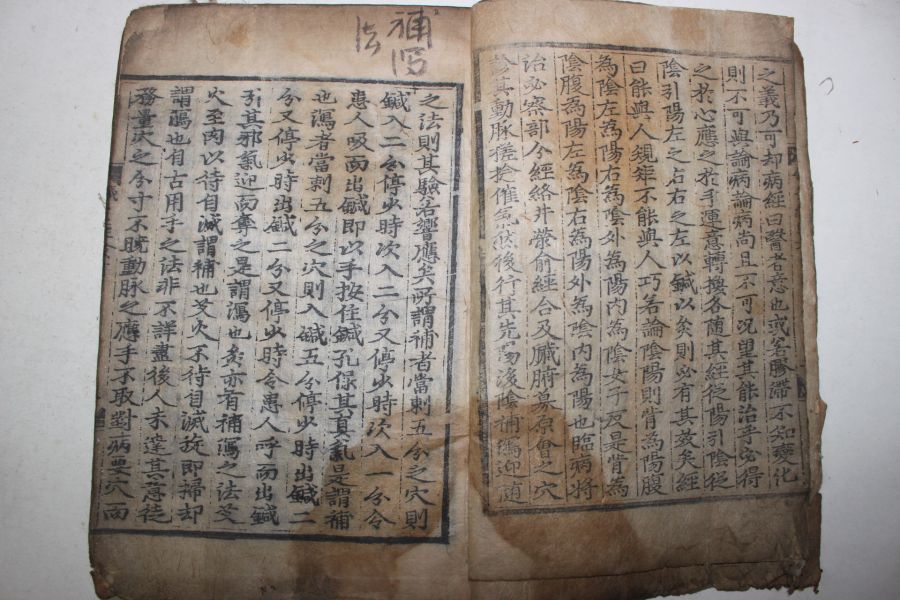 之義乃可却病經曰醫者意也或若膠滯不知變化
則不可與論病論病尚且不可况望其能治乎古得
之於心應之於手運意轉換各随其經從陽引陰從
陰引陽左之占右右之左以鍼以灸則必有其效矣經
曰能與人規矩不能與人巧若論陰陽則背為陽腹
為陰左為陽右為陰外為陽内為陰女子反是背為
陰腹為陽左為陰右為陽外為陰内為陽也臨病將
治必察部分經絡井滎俞經合及臟腑募原會之穴
診其動脉搓捻催氣然後行其先陽後陰補瀉迎随
補写
法
之法則其驗若響應矣所謂補者當刺五分之穴則
鍼入二分停少時次入二分又停少時次入一分令
患人吸而出鍼即以手按住鍼孔保其真氣是謂補
也瀉者當刺五分之穴則入鍼五分停少時出鍼二
分又停少時出鍼二分又停少時令患人呼而出鍼
引其邪氣迎而奪之是謂瀉也灸亦有補瀉之法艾
火至肉以待自滅謂補也艾火不待自滅旋即掃却
謂瀉也有古用手之法非不詳盡後人未達其意徒
務量穴之分寸不脱動脉之應手不取對病要穴而